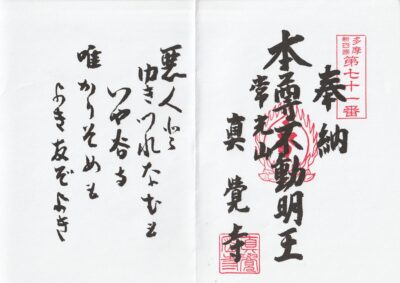 多摩
新四国
第七十一番
奉納
本尊不動明王
常光山
眞覺寺
悪人と
ゆきつれなむも
いや谷寺
唯かりそめも
よき友ぞよき